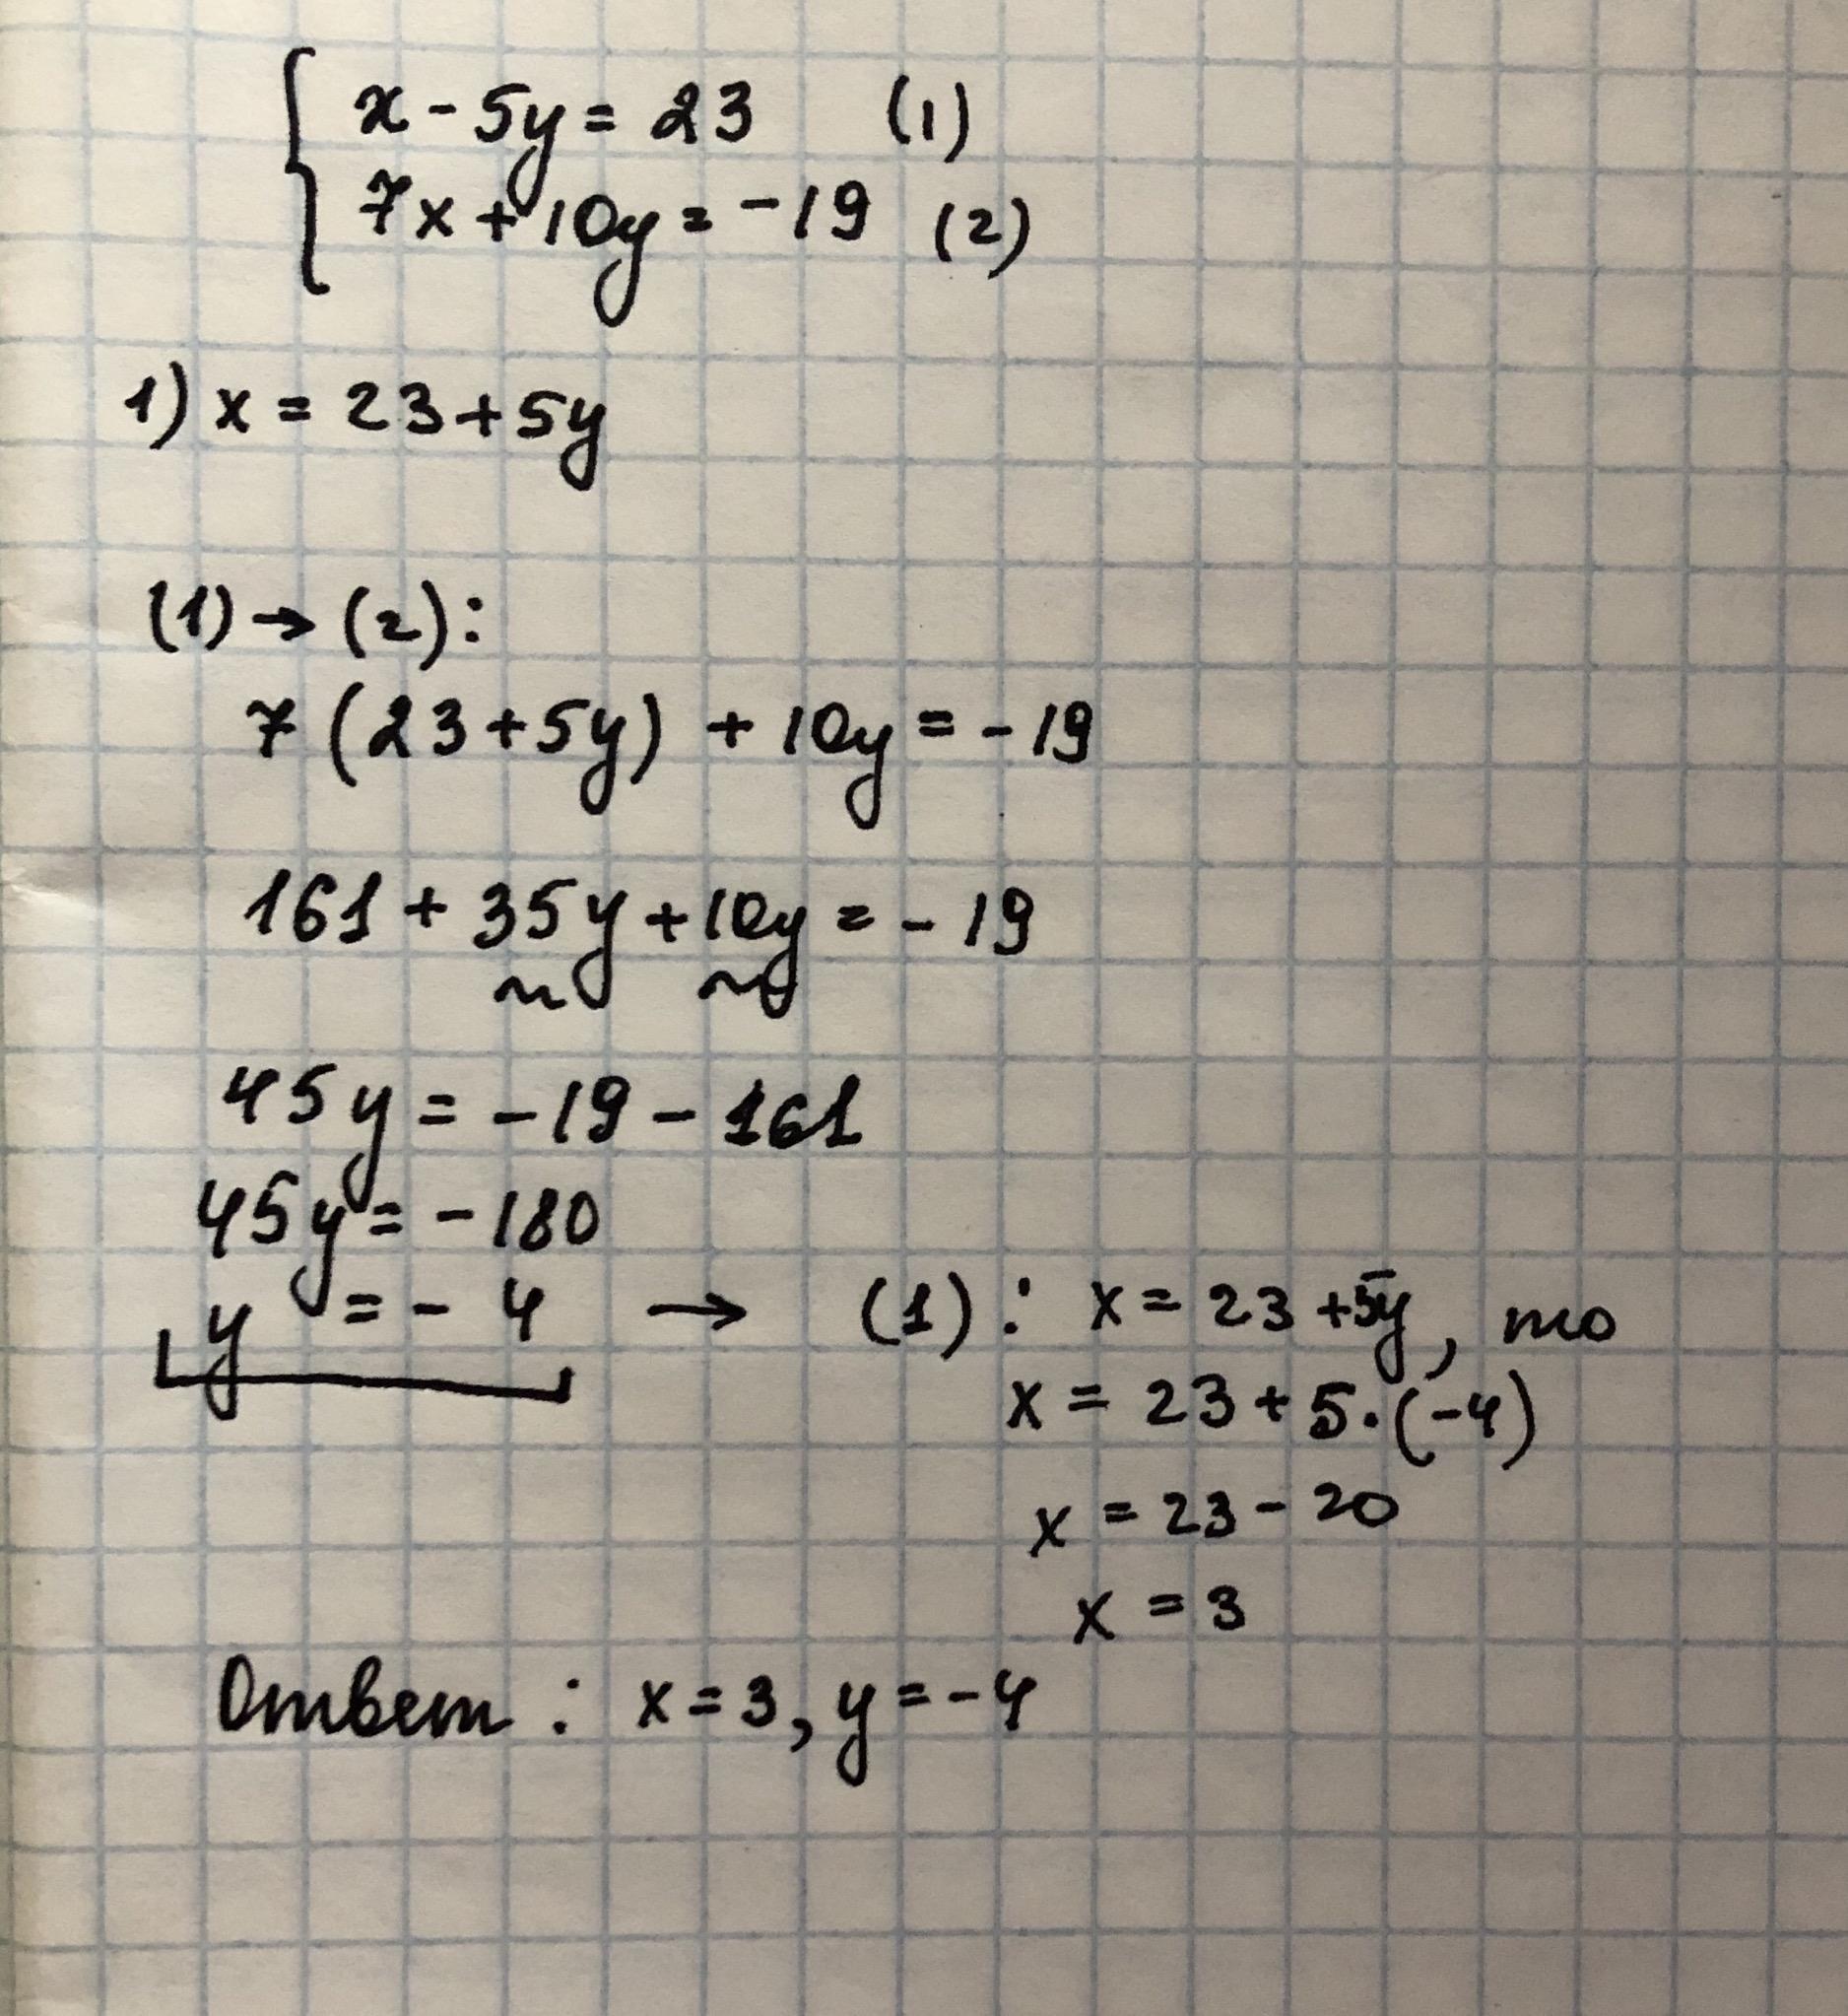 x - 5y = 23 (1)
7x + 10y = -19 (2)
1) x = 23 + 5y
(1) → (2):
7 (23 + 5y) + 10y = -19
161 + 35y + 10y = -19
45y = -19 - 161
45y = -180
y = -4 → (1): x = 23 + 5y, то
x = 23 + 5·(-4)
x = 23 - 20
x = 3
Ответ: x = 3, y = -4